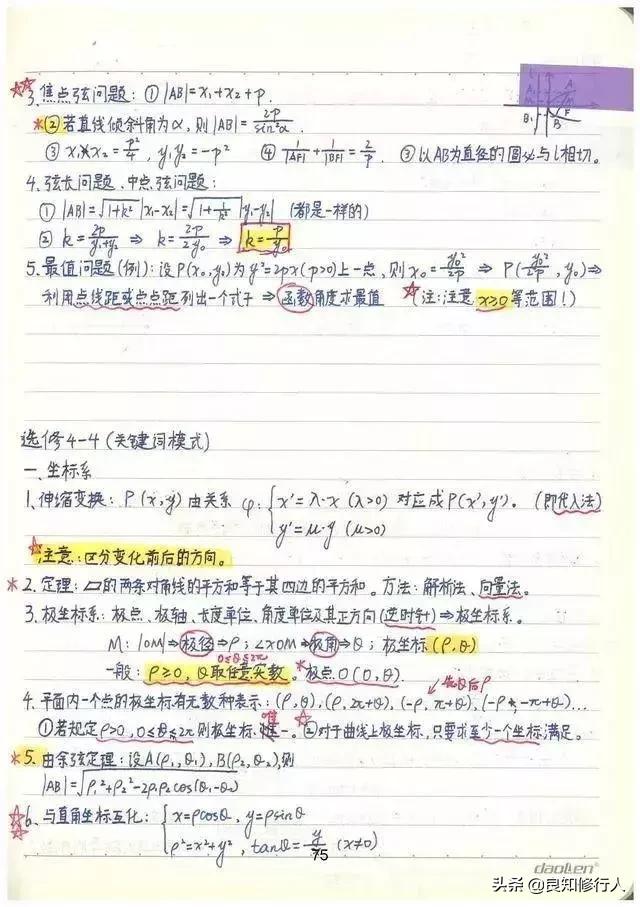 3. 焦点弦问题：① |AB|=x₁+x₂+p.
② 若直线倾斜角为α，则|AB|=2p/sin²α.
③ x₁x₂=p²/4，y₁y₂=-p² ④ 1/|AF|+1/|BF|=2/p. ⑤ 以AB为直径的圆必与l相切。
A
A₁
F
B₁
B
4. 弦长问题、中点弦问题：
① |AB|=√(1+k²)|x₁-x₂|=√(1+1/k²)|y₁-y₂| (都是一样的)
② k=2p/(y₁+y₂) ⇒ k=2p/2y₀ ⇒ k=p/y₀
5. 最值问题(例)：设P(x₀,y₀)为y²=2px(p>0)上一点，则x₀=y₀²/2p ⇒ P(y₀²/2p, y₀)⇒
利用点线距或点点距列出一个式子 ⇒ 函数角度求最值 (注：注意x≥0等范围！)
选修4-4 (关键词模式)
一、坐标系
1. 伸缩变换：P(x,y)由关系 φ：{x'=λ·x (λ>0) 对应成P(x',y')。 (即代入法)
y'=μ·y (μ>0)
注意：区分变化前后的方向。
2. 定理：▱的两条对角线的平方和等于其四边的平方和。方法：解析法、向量法。
3. 极坐标系：极点、极轴、长度单位、角度单位及其正方向(逆时针)⇒极坐标系。
M：|OM|⇒极径⇒ρ；∠xOM⇒极角⇒θ；极坐标(ρ,θ)
0≤θ≤2π
一般：ρ≥0，θ取任意实数。 极点O(0,θ).
先θ后ρ
4. 平面内一个点的极坐标有无数种表示：(ρ,θ),(ρ,2π+θ),(-ρ,π+θ),(-ρ,-π+θ)...
① 若规定ρ>0, 0≤θ≤2π则极坐标唯一。 ② 对于曲线上极坐标，只要求至少一个坐标满足。
5. 由余弦定理：设A(ρ₁,θ₁), B(ρ₂,θ₂),则
|AB|=√(ρ₁²+ρ₂²-2ρ₁ρ₂cos(θ₁-θ₂))
6. 与直角坐标互化：{x=ρcosθ，y=ρsinθ
ρ²=x²+y²，tanθ=y/x (x≠0)
75
daolien®
头条 @良知修行人